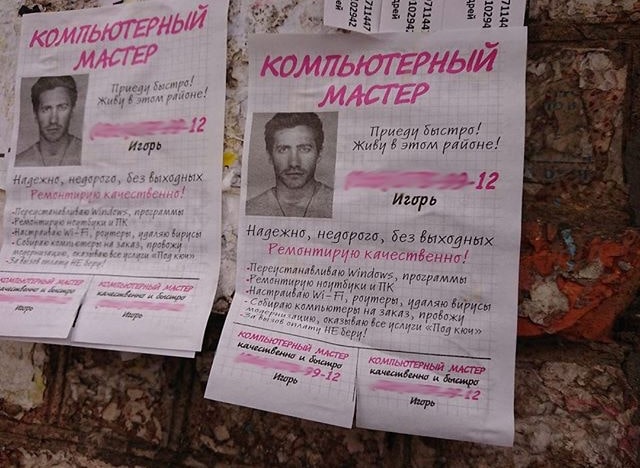 КОМПЬЮТЕРНЫЙ
МАСТЕР
Приеду быстро!
Живу в этом районе!
-12
Игорь
Надежно, недорого, без выходных
Ремонтирую качественно!
-Переустанавливаю Windows, программы
-Ремонтирую ноутбуки и ПК
-Настраиваю Wi-Fi, роутеры, удаляю вирусы
-Собираю компьютеры на заказ, провожу
модернизацию, оказываю все услуги «Под
-За вызов оплату НЕ беру!
КОМПЬЮТЕРНЫЙ МАСТЕР
качественно и быстро
Игорь
КОМПЬЮТЕРНЫЙ МАСТЕР
качественно и быстро
Игорь
711447
102942
арей
711447
102942
арей
711447
102942
арей
КОМПЬЮТЕРНЫЙ
МАСТЕР
Приеду быстро!
Живу в этом районе!
-12
Игорь
Надежно, недорого, без выходных
Ремонтирую качественно!
-Переустанавливаю Windows, программы
-Ремонтирую ноутбуки и ПК
-Настраиваю Wi-Fi, роутеры, удаляю вирусы
-Собираю компьютеры на заказ, провожу
модернизацию, оказываю все услуги «Под кюч»
-За вызов оплату НЕ беру!
КОМПЬЮТЕРНЫЙ МАСТЕР
качественно и быстро
9-12
Игорь
КОМПЬЮТЕРНЫЙ МАСТЕР
качественно и быстро
-12
Игорь